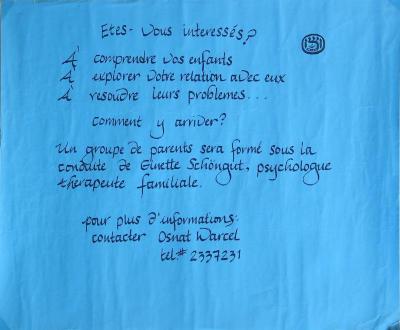 Etes-vous interessés?
A' comprendre vos enfants
A' explorer votre relation avec eux
A' resoudre leurs problemes...
Comment y arriver?
Un groupe de parents sera formé sous la
conduite de Ginette Schöngut, psychologue
therapeute familiale.
pour plus d'informations:
contacter Osnat Warcel
tel.# 2337231